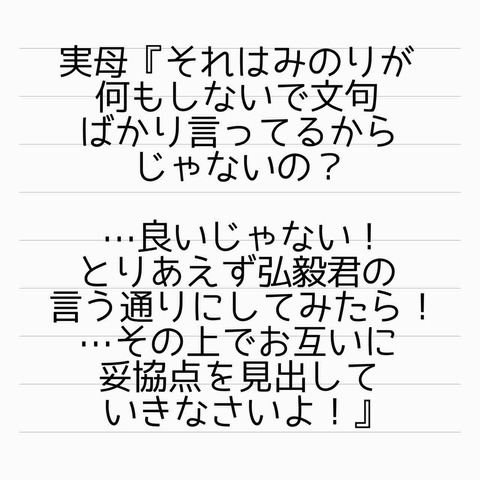 実母『それはみのりが
何もしないで文句
ばかり言ってるから
じゃないの？
…良いじゃない！
とりあえず弘毅君の
言う通りにしてみたら！
…その上でお互いに
妥協点を見出して
いきなさいよ！』